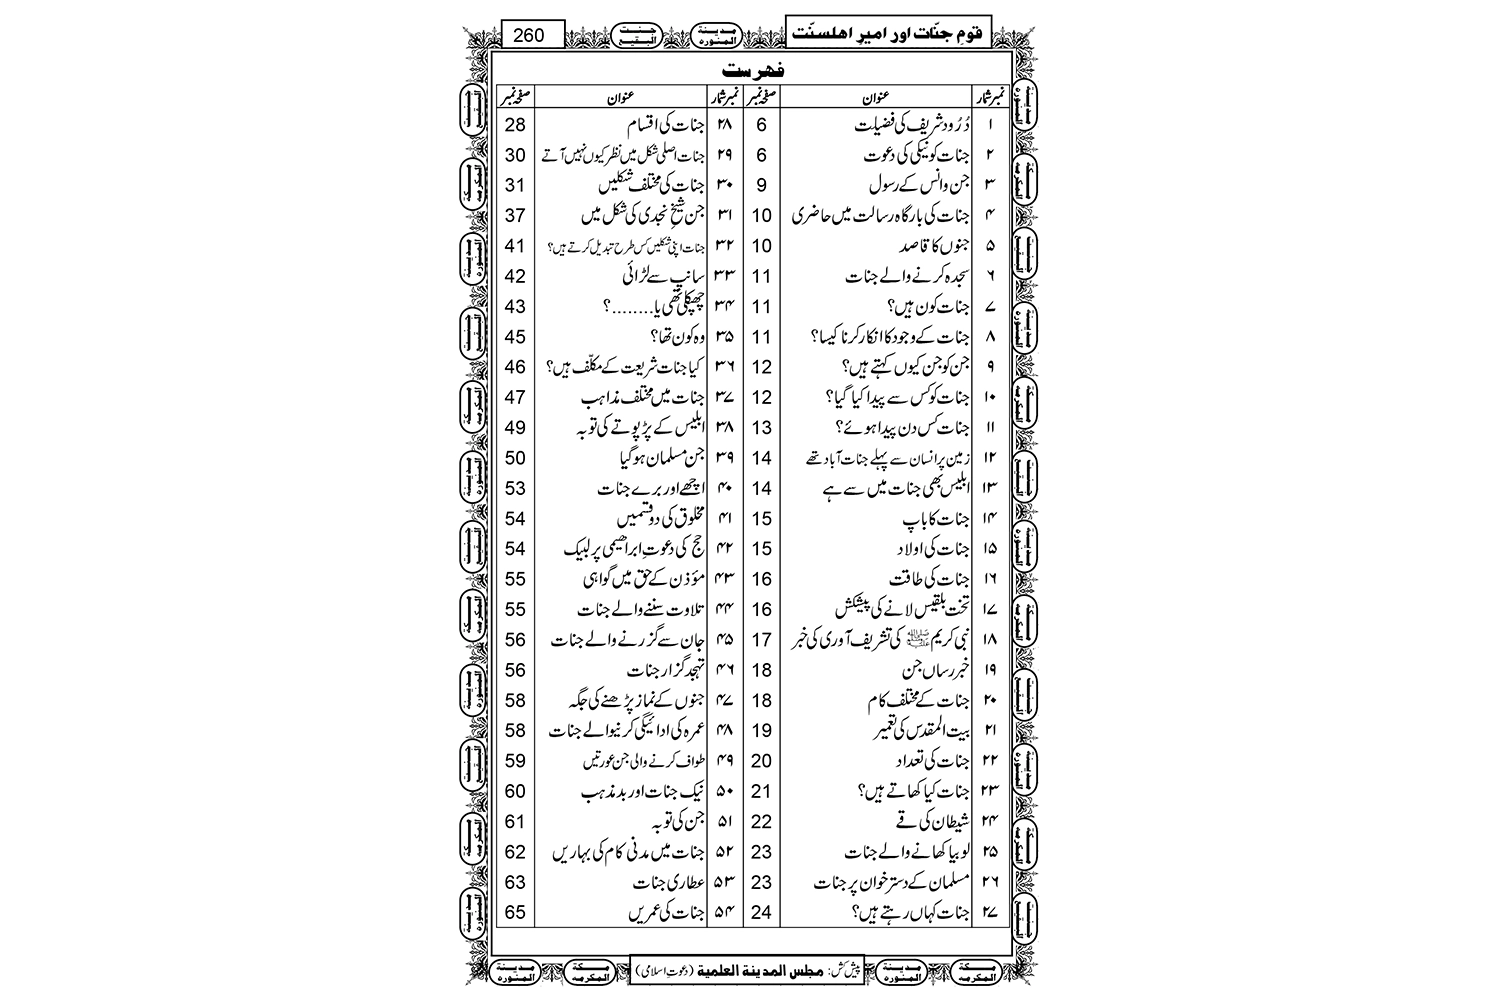 قومِ جنّات اور امیرِ اھلسنّت
مدینة المنوره
جنت البقیع
260
فہرست
نمبر شمار عنوان صفحہ نمبر نمبر شمار عنوان صفحہ نمبر
۱ دُرُود شریف کی فضیلت 6 ۲۸ جنات کی اقسام 28
۲ جنات کو نیکی کی دعوت 6 ۲۹ جنات اصلی شکل میں نظر کیوں نہیں آتے 30
۳ جن وانس کے رسول 9 ۳۰ جنات کی مختلف شکلیں 31
۴ جنات کی بارگاہ رسالت میں حاضری 10 ۳۱ جن شیخِ نجدی کی شکل میں 37
۵ جنوں کا قاصد 10 ۳۲ جنات اپنی شکلیں کس طرح تبدیل کرتے ہیں؟ 41
۶ سجدہ کرنے والے جنات 11 ۳۳ سانپ سے لڑائی 42
۷ جنات کون ہیں؟ 11 ۳۴ چھپکلی تھی یا........؟ 43
۸ جنات کے وجود کا انکار کرنا کیسا؟ 11 ۳۵ وہ کون تھا؟ 45
۹ جن کو جن کیوں کہتے ہیں؟ 12 ۳۶ کیا جنات شریعت کے مکلّف ہیں؟ 46
۱۰ جنات کو کس سے پیدا کیا گیا؟ 12 ۳۷ جنات میں مختلف مذاہب 47
۱۱ جنات کس دن پیدا ہوئے؟ 13 ۳۸ ابلیس کے پڑپوتے کی توبہ 49
۱۲ زمین پر انسان سے پہلے جنات آباد تھے 14 ۳۹ جن مسلمان ہو گیا 50
۱۳ ابلیس بھی جنات میں سے ہے 14 ۴۰ اچھے اور برے جنات 53
۱۴ جنات کا باپ 15 ۴۱ مخلوق کی دو قسمیں 54
۱۵ جنات کی اولاد 15 ۴۲ حج کی دعوتِ ابراھیمی پر لبیک 54
۱۶ جنات کی طاقت 16 ۴۳ مؤذن کے حق میں گواہی 55
۱۷ تختِ بلقیس لانے کی پیشکش 16 ۴۴ تلاوت سننے والے جنات 55
۱۸ نبی کریم ﷺ کی تشریف آوری کی خبر 17 ۴۵ جان سے گزرنے والے جنات 56
۱۹ خبر رساں جن 18 ۴۶ تہجد گزار جنات 56
۲۰ جنات کے مختلف کام 18 ۴۷ جنوں کے نماز پڑھنے کی جگہ 58
۲۱ بیت المقدس کی تعمیر 19 ۴۸ عمرہ کی ادائیگی کرنیوالے جنات 58
۲۲ جنات کی تعداد 20 ۴۹ طواف کرنے والی جن عورتیں 59
۲۳ جنات کیا کھاتے ہیں؟ 21 ۵۰ نیک جنات اور بدمذہب 60
۲۴ شیطان کی قے 22 ۵۱ جن کی توبہ 61
۲۵ لوبیا کھانے والے جنات 23 ۵۲ جنات میں مدنی کام کی بہاریں 62
۲۶ مسلمان کے دسترخوان پر جنات 23 ۵۳ عطاری جنات 63
۲۷ جنات کہاں رہتے ہیں؟ 24 ۵۴ جنات کی عمریں 65
مکة المکرمه
مدینة المنوره
پیش کش: مجلس المدینة العلمیة (دعوتِ اسلامی)
مکة المکرمه
مدینة المنوره